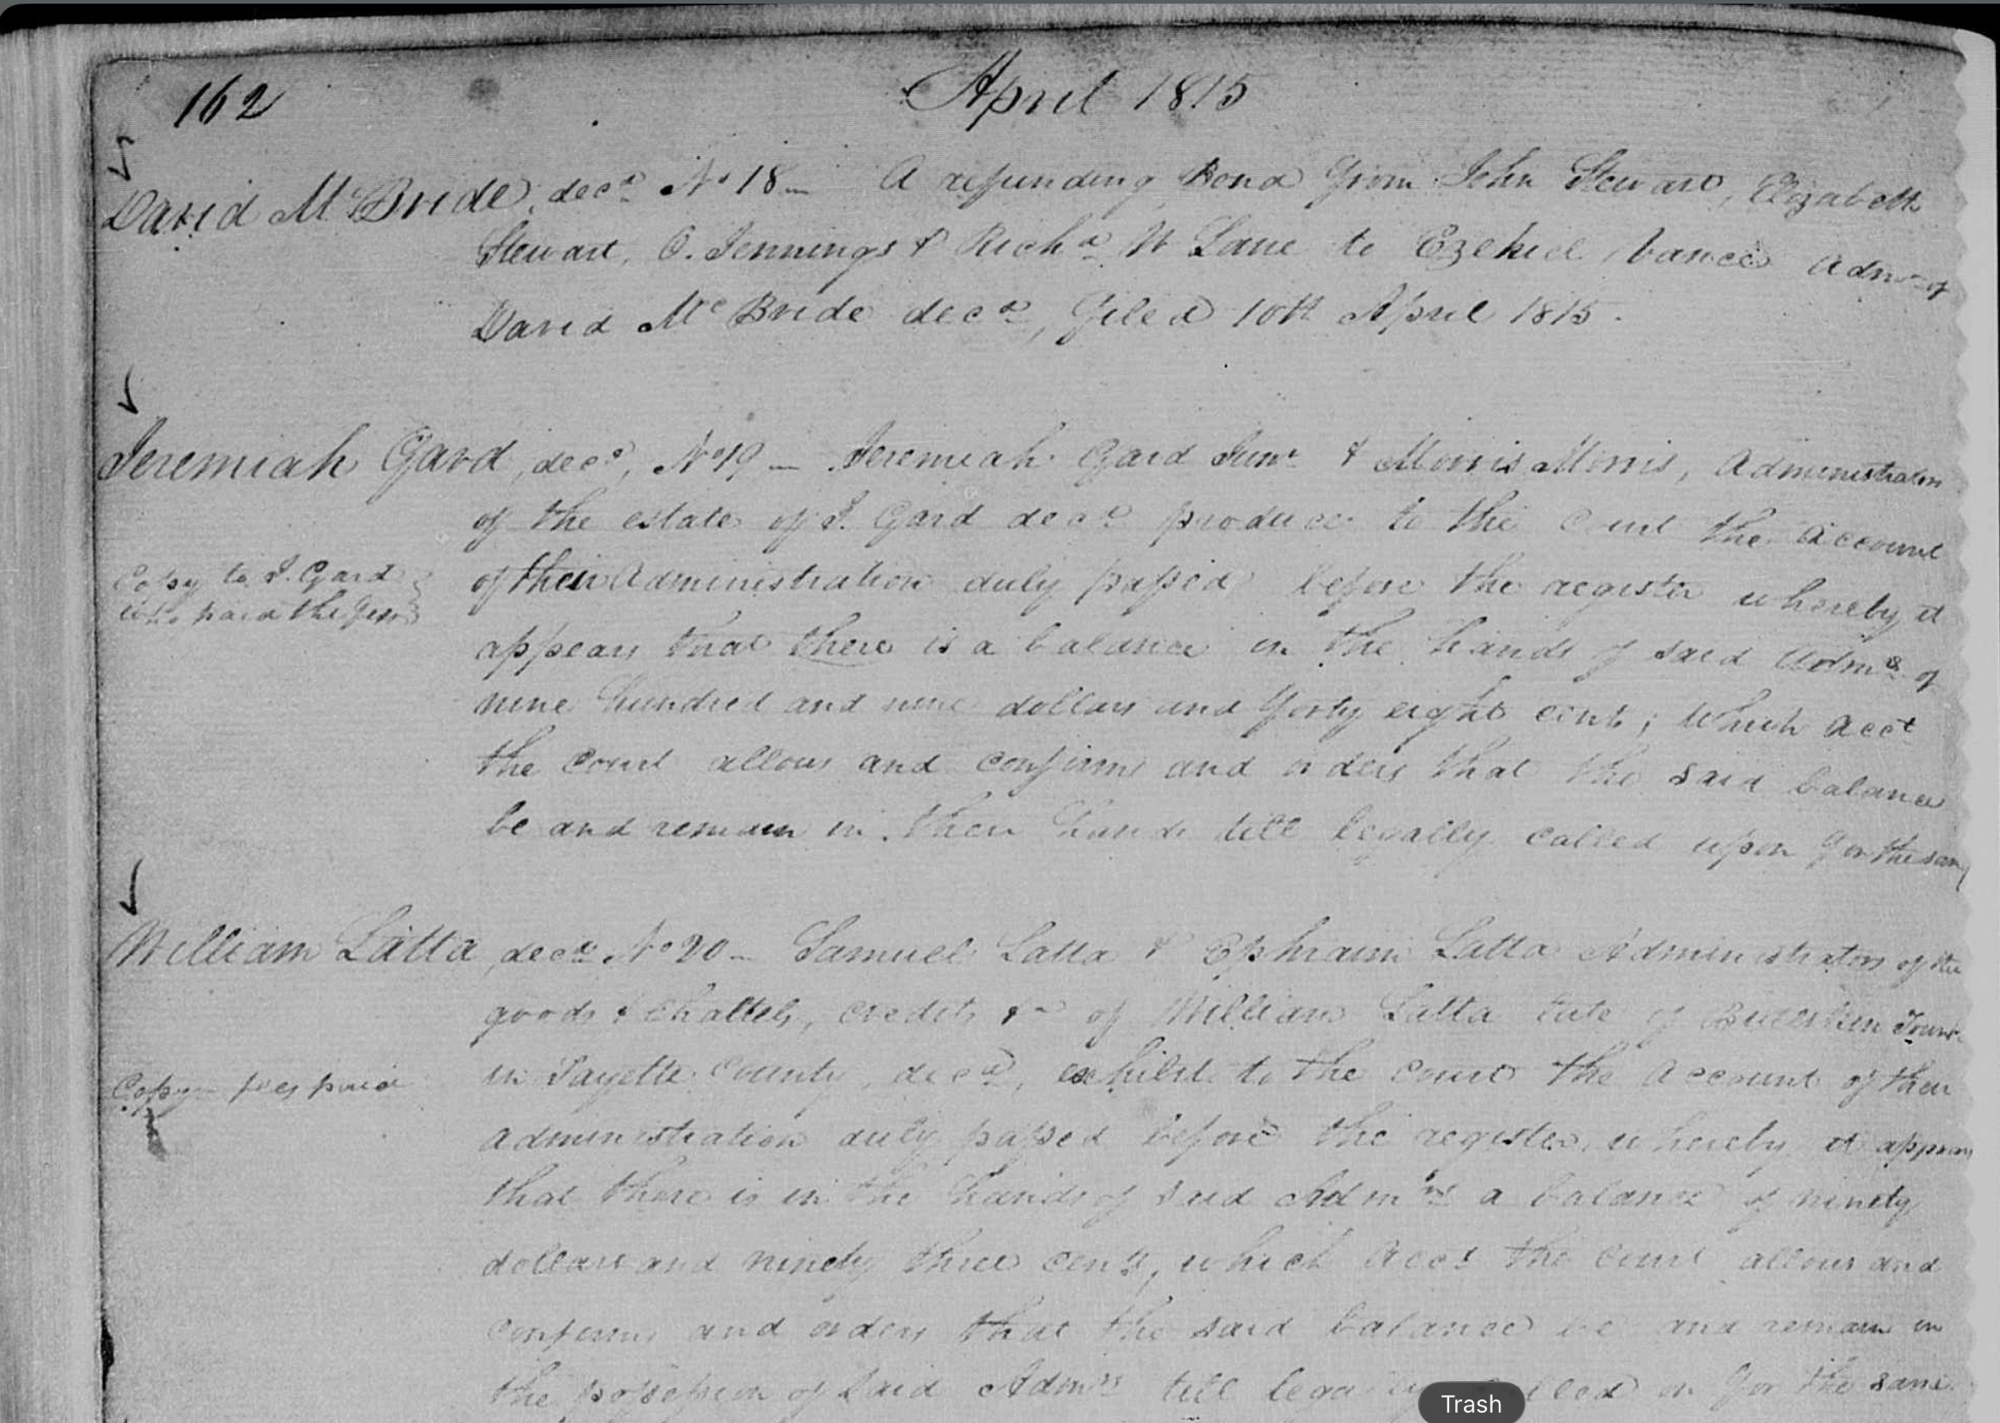 162 April 1815
David McBride, decd No 18 — A refunding Bond from John Stewart, Elizabeth
Stewart, O. Jennings & Richd W Lane to Ezekiel Admr of
David McBride decd, filed 10th April 1815.
Jeremiah Gard, decd, No 19 — Jeremiah Gard Junr & Morris Morris, Administrators
of the estate of J. Gard decd produce to the Court the Account
of their Administration duly passed before the register whereby it
Copy to J. Gard
who paid the fees
appears that there is a balance in the hands of said Admrs of
nine hundred and nine dollars and forty eight cents; which acct
the court allows and confirms and orders that the said balance
be and remain in their hands till legally called upon for the same
William Latta, decd No 20 — Samuel Latta & Ephraim Latta Administrators of the
goods & chattels, credits &c of William Latta late of Bullskin Townp
in Fayette County decd, exhibit to the court the account of their
Copy fees paid
administration duly passed before the register, whereby it appears
that there is in the hands of said Admrs a balance of ninety
dollars and ninety three cents, which acct the court allows and
confirms and orders that the said balance be and remain in
the possession of said Admrs till called on for the same
Trash